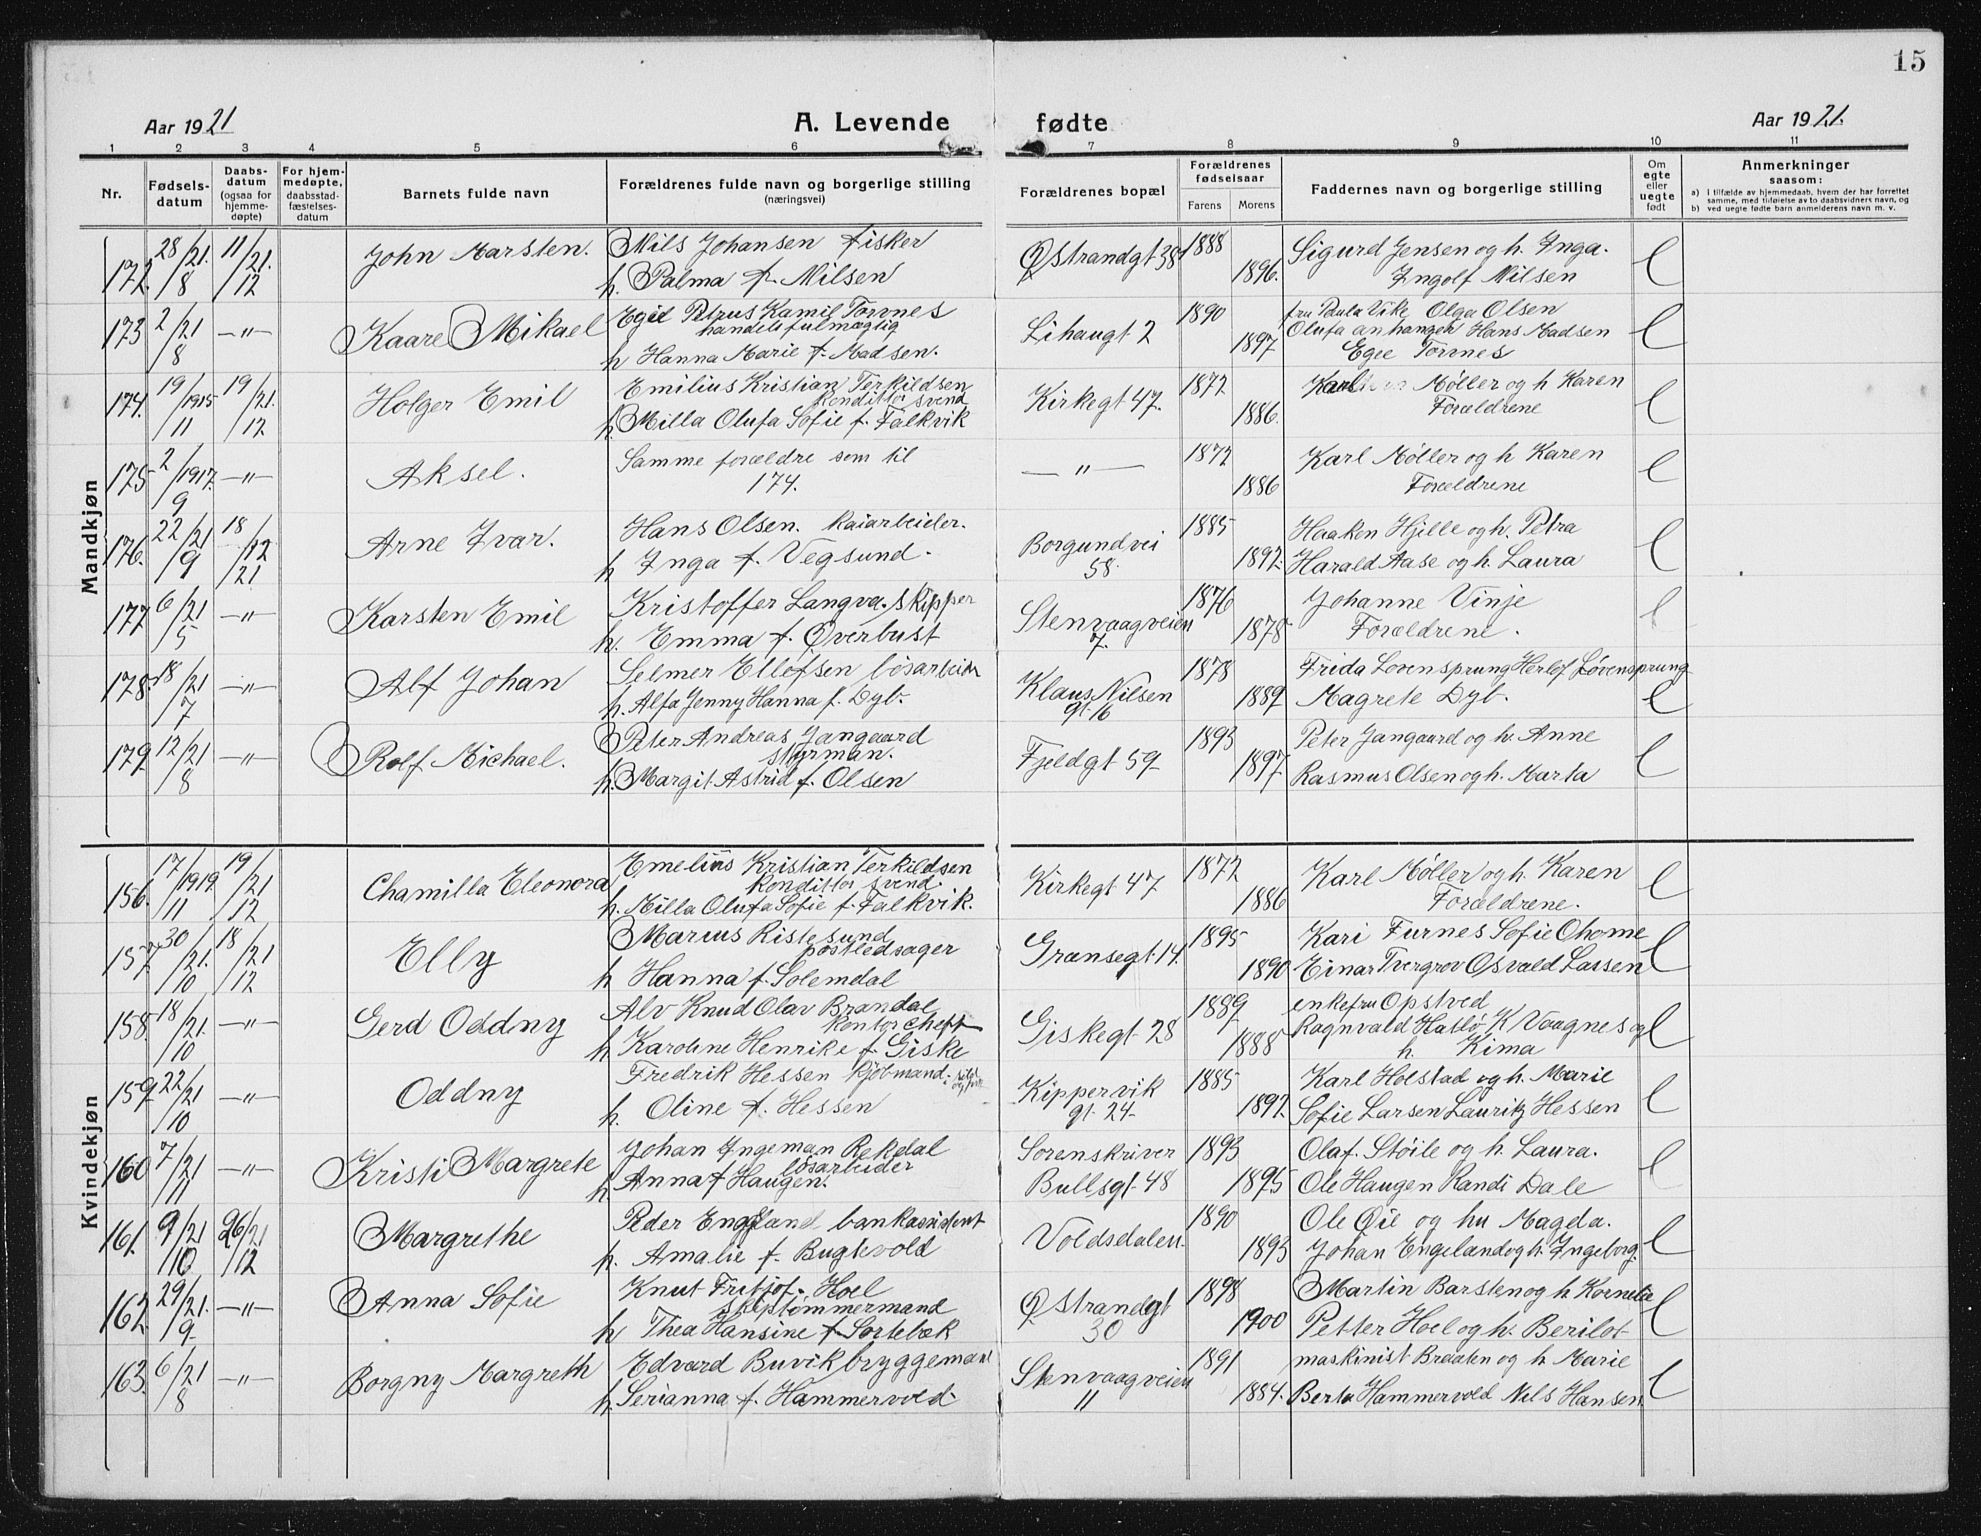 15
Aar 1921 A. Levende fødte Aar 1921
1 2 3 4 5 6 7 8 9 10 11
Nr. Fødsels-datum Daabs-datum (ogsaa for hjemme-døpte) For hjem-medøpte, daabsstad-fæstelses-datum Barnets fulde navn Forældrenes fulde navn og borgerlige stilling (næringsvei) Forældrenes bopæl Forældrenes fødselsaar Farens Morens Faddernes navn og borgerlige stilling Om egte eller uegte født Anmerkninger saasom:
a) I tilfælde av hjemmedaab, hvem der har forrettet samme, med tilføielse av to daabsvidners navn, og
b) ved uegte fødte barn anmelderens navn m. v.
Mandkjøn
172. 28/21 8 11/21. 12 John Karsten. Nils Johansen fisker Østrandgt 38 1888 Sigurd Jensen og h. Inga. e
h. Palma f. Nilsen 1896. Ingolf Nilsen
173 2/21 8 —"— Kaare Mikael Egil Petrus Kamil Tornes Lihaugt 2 1890 fru Paula Vike Olga Olsen e
handelsfulmægtig Olufa Hans Madsen
h Hanna Marie f. Madsen. 1897 Egil Tornes
174. 19/1915 11 19/21. 12 Holger Emil Emilius Kristian Terkildsen Kirkegt 47. 1872 Karl Møller og h Karen e
konditor svend
h. Milla Olufa Sofie f. Falkvik 1886. Forældrene
175 2/1917. 9 —"— Aksel. Samme forældre som til —"— 1872 Karl Møller og h Karen e
174. 1886 Forældrene
176. 22/21 9 18/12 21 Arne Ivar. Hans Olsen. kaiarbeider. Borgundvei 58 1885 Haaken Hjelle og h. Petra e
h Inga f. Vegsund. 1892. Harald Aase og h. Laura
177 6/21 5 —"— Karsten Emil Kristoffer Langva. skipper Stenvaagveien 7. 1876 Johanne Vinje e
h. Emma f. Øverbust 1878 Forældrene.
178. 18/21 7 —"— Alf Johan Selmer Ellefsen løsarbeider Klaus Nilsen gt. 16 1878 Frida Lovensprung Herlof Løvensprung
h. Alfa Jenny Hanna f. Dyb. 1889 Magrete Dyb. e
179. 12/21 8 —"— Rolf Michael. Peter Andreas Jangaard Fjeldgt 59 1893 Peter Jangaard og h. Anne e
styrman.
h. Margit Astrid f. Olsen 1897 Rasmus Olsen og h. Marta
Kvindekjøn
156. 17/1919 11 19/21 12 Chamilla Eleonora Emelius Kristian Terkildsen Kirkegt 47 1872 Karl Møller og h. Karen e
konditor svend
h. Milla Olufa Sofie f. Falkvik. 1886 Forældrene.
157 30/21. 10 18/21 12 Elly Marius Ristesund Grænsegt. 14. 1895 Kari Furnes Sofie e
postledsager
h Hanna f. Solemdal 1890 Einar Tvergrov Osvald Lassen
158. 18/21. 10 —"— Gerd Oddny Alv Knud Olav Brandal Giskegt 28 1889 enkefru Opstved e
kontorchef Ragnvald Hatlø K Vaagnes og
h Karoline Henrike f Giske 1888 h. Kima
159. 22/21 10 —"— Oddny Fredrik Hessen kjøbmand Kippervik gt. 24 1885 Karl Holstad og h. Marie e
h. Oline f. Hessen 1892. Sofie Larsen Lauritz Hessen
160 7/21 11 —"— Kristi Margrete Johan Ingeman Rekdal Sorenskriver 1893 Olaf. Støile og h. Laura. e
løsarbeider
h Anna f Haugen. Bullsgt. 48 1895 Ole Haugen Randi Dale
161. 9/21 10 26/21 12 Margrethe Peder Engeland bankassistent Voldsdalen 1890 Ole Øie og hu Magda. e
h. Amalie f. Bugtevold 1893 Johan Engeland og h. Ingeborg.
162 29/21. 9 —"— Anna Sofie Knut Fritjof. Hoel Østrandgt 30 1898 Martin Barsten og h Kornelie e
skiptømmermand
h Thea Hansine f Sortebæk 1900 Petter Hoel og h. Berilot
163. 6/21 8 —"— Borgny Margreth Edvard Buvik bryggemand Stenvaagveien 11 1891 maskinist Braaten og h Marie e
h. Serianna f. Hammervold. 1884. Berta Hammervold Nils Hansen